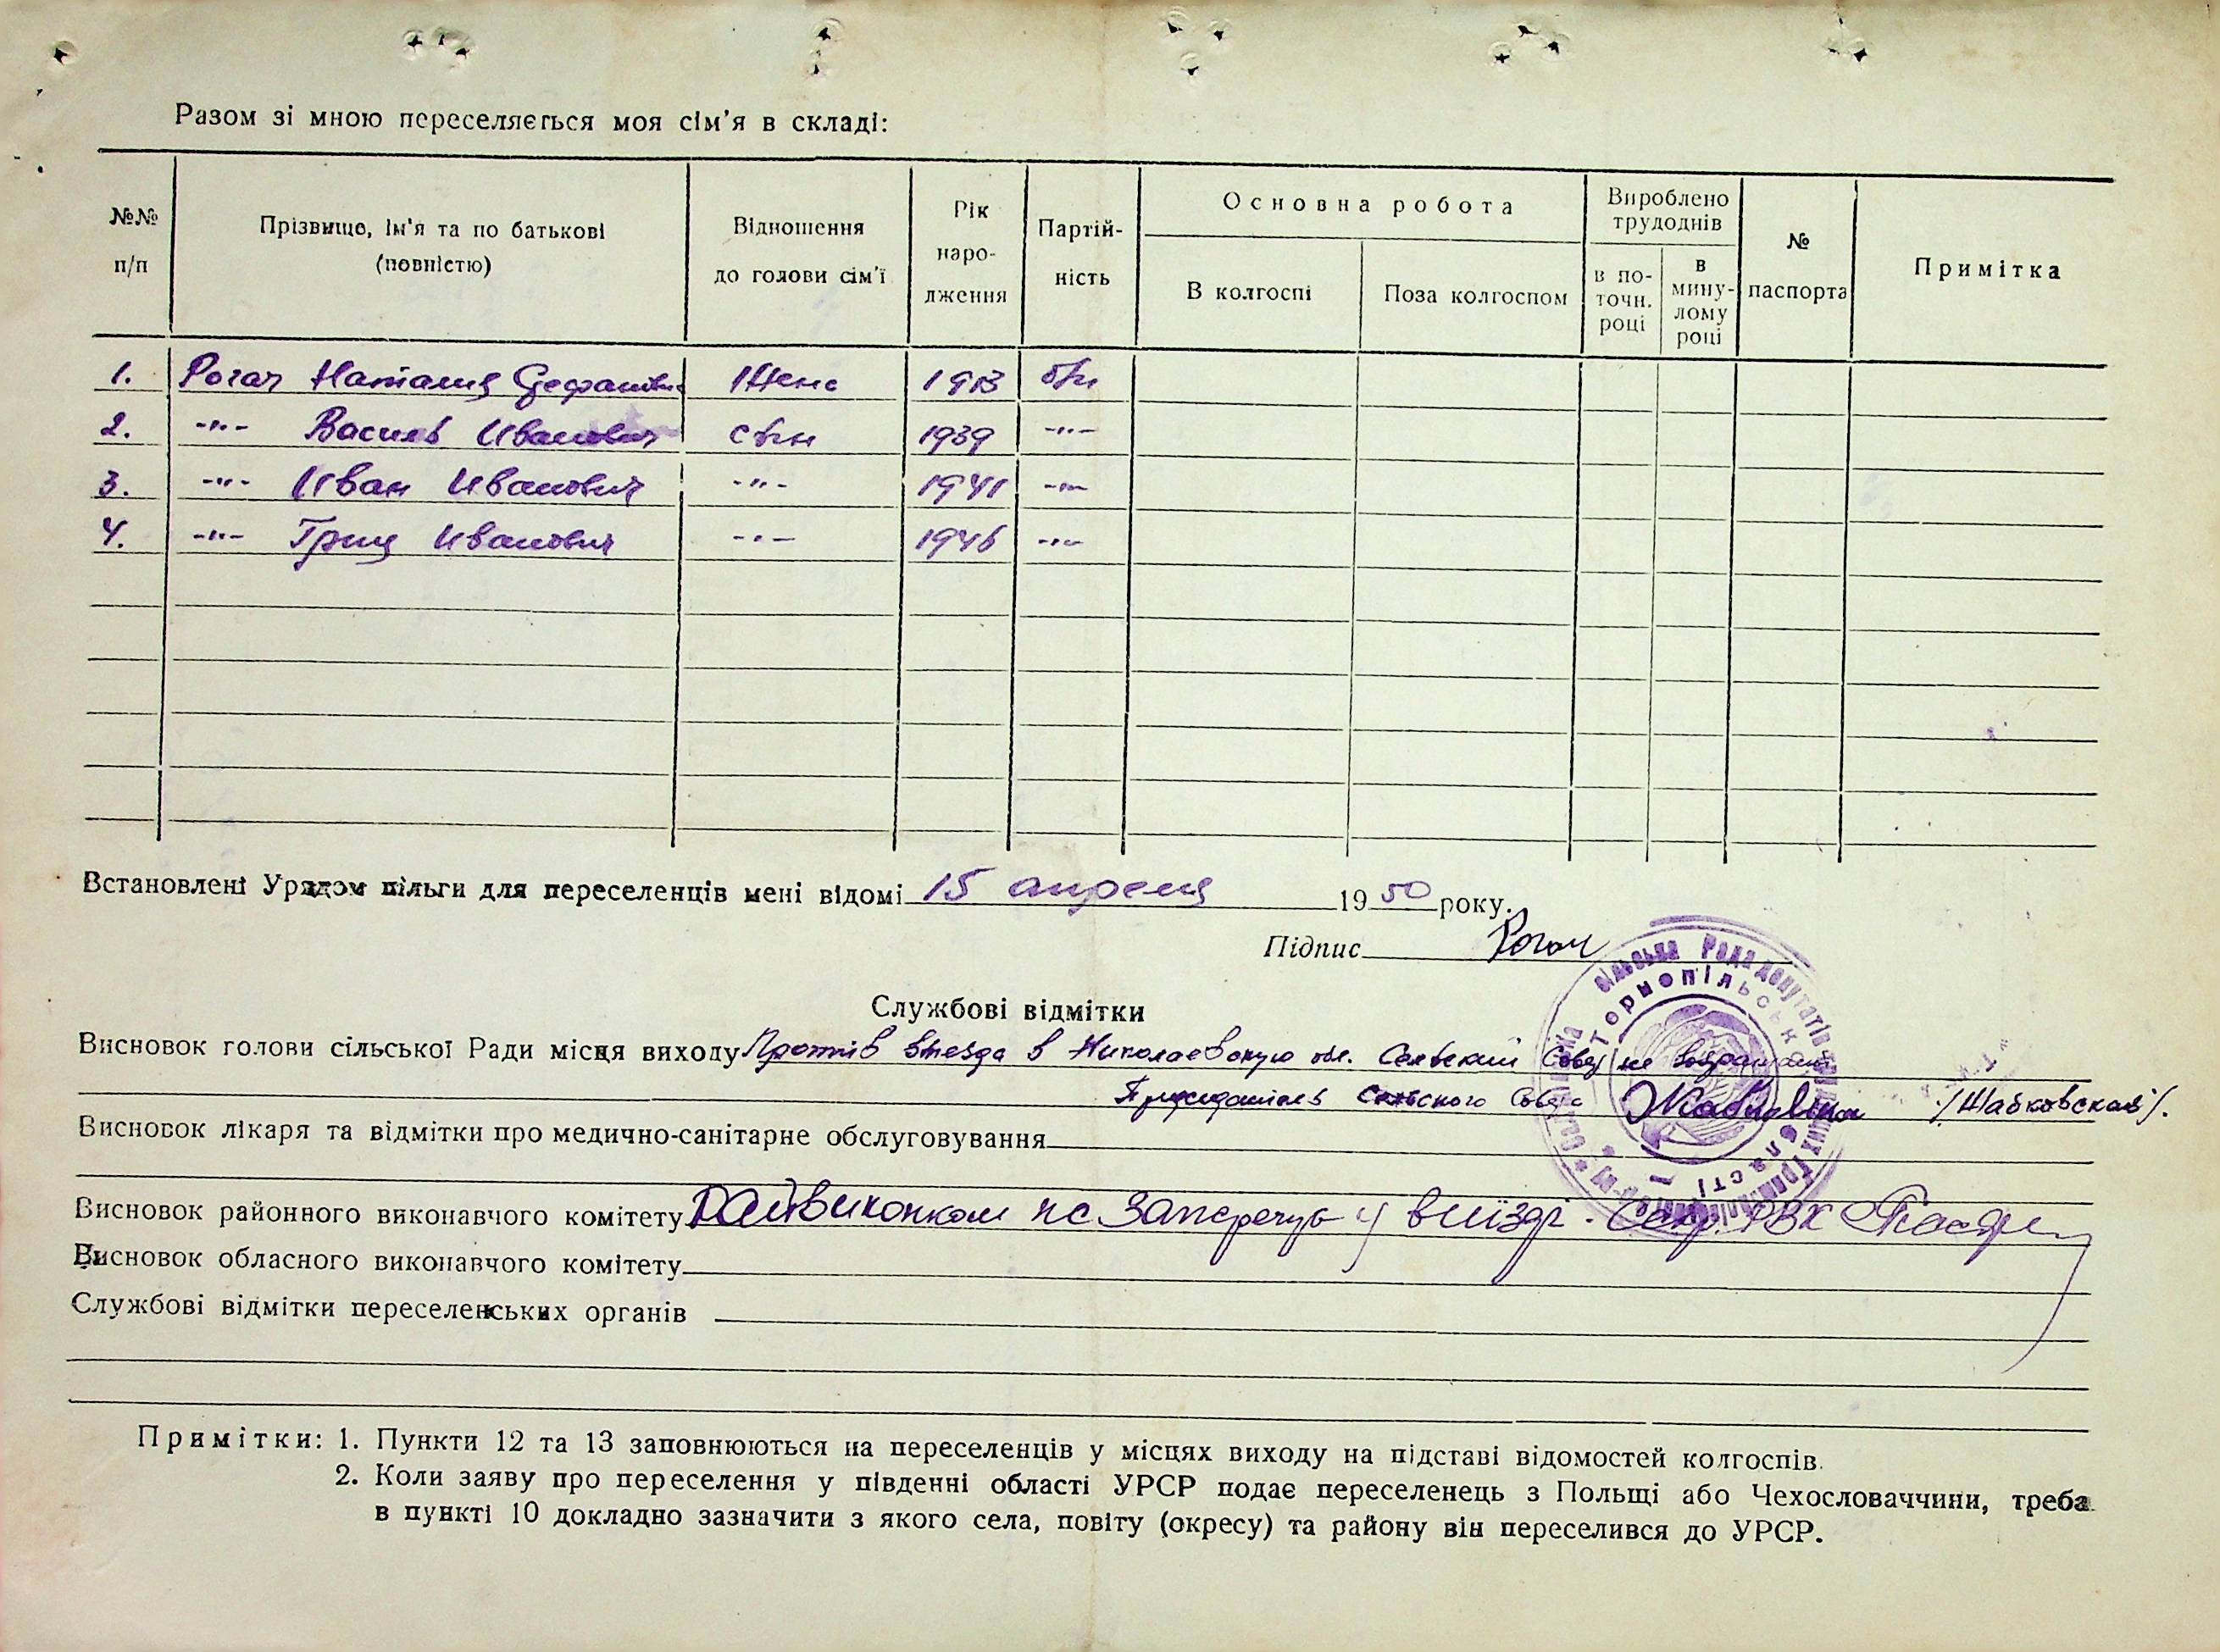 Разом зі мною переселяється моя сім'я в складі:
№№ п/п
Прізвище, ім'я та по батькові (повністю)
Відношення до голови сім'ї
Рік народження
Партійність
Основна робота
В колгоспі
Поза колгоспом
Вироблено трудоднів
в поточн. році
в минулому році
№ паспорта
Примітка
1. Рогач Наталия Стефановна Жена 1913 б/п
2. -"- Василь Иванович сын 1939 -"-
3. -"- Иван Иванович -"- 1941 -"-
4. -"- Гриц Иванович -"- 1946 -"-
Встановлені Урядом пільги для переселенців мені відомі 15 апреля 1950 року.
Підпис Рогач
Службові відмітки
Висновок голови сільської Ради місця виходу Против въезда в Николаевскую обл. Сельский Совет не возражает
Председатель Сельского Совета /Жабковская/.
Висновок лікаря та відмітки про медично-санітарне обслуговування
Висновок районного виконавчого комітету Райвиконком не заперечує у виїзді. Секр. РВК
Висновок обласного виконавчого комітету
Службові відмітки переселенських органів
Примітки: 1. Пункти 12 та 13 заповнюються на переселенців у місцях виходу на підставі відомостей колгоспів.
2. Коли заяву про переселення у південні області УРСР подає переселенець з Польщі або Чехословаччини, треба
в пункті 10 докладно зазначити з якого села, повіту (округу) та району він переселився до УРСР.